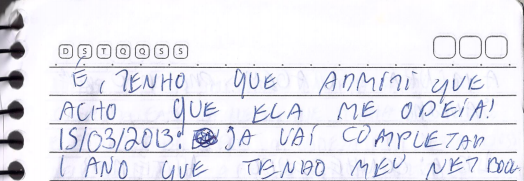 D S T Q Q S S
É, TENHO QUE ADMITI QUE
ACHO QUE ELA ME ODEIA!
15/03/2013: JA VAI COMPLETAR
1 ANO QUE TENHO MEU NETBOOK